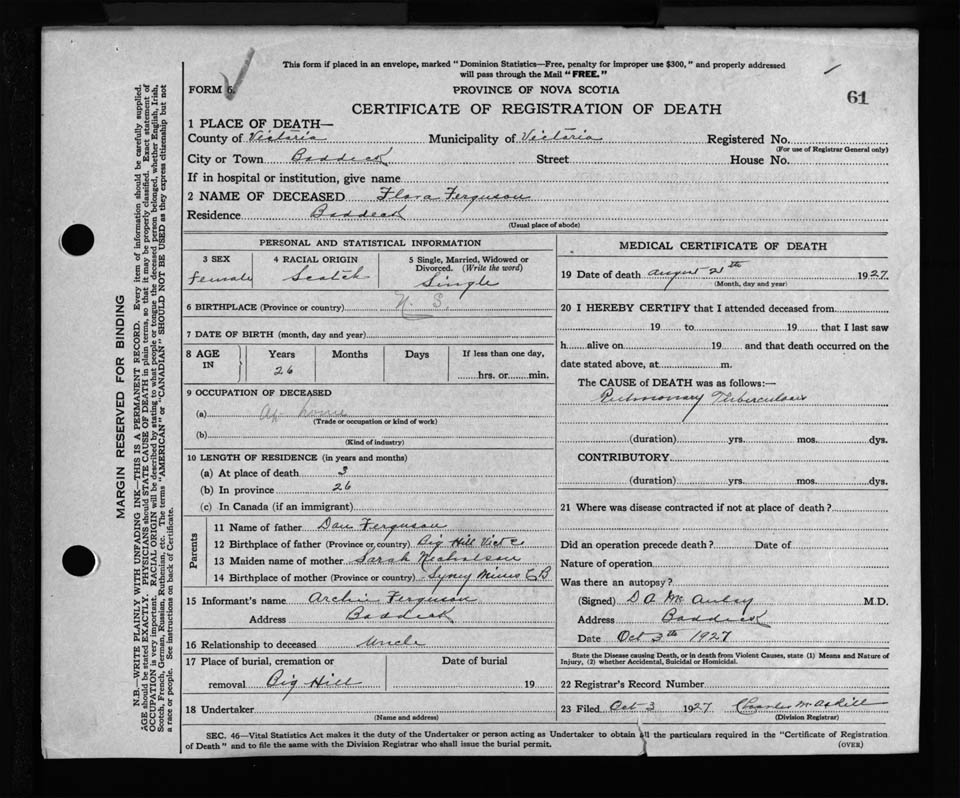 This form if placed in an envelope, marked "Dominion Statistics—Free, penalty for improper use $300," and properly addressed
will pass through the Mail "FREE."
FORM 6.
PROVINCE OF NOVA SCOTIA
61
CERTIFICATE OF REGISTRATION OF DEATH
1 PLACE OF DEATH—
County of Victoria Municipality of Victoria Registered No.
(For use of Registrar General only)
City or Town Baddeck Street House No.
If in hospital or institution, give name
2 NAME OF DECEASED Flora Ferguson
Residence Baddeck
(Usual place of abode)
PERSONAL AND STATISTICAL INFORMATION
3 SEX 4 RACIAL ORIGIN 5 Single, Married, Widowed or
Divorced. (Write the word)
Female Scotch Single
6 BIRTHPLACE (Province or country) N. S.
7 DATE OF BIRTH (month, day and year)
8 AGE IN Years Months Days If less than one day,
26 hrs. or min.
9 OCCUPATION OF DECEASED
(a) At home
(Trade or occupation or kind of work)
(b)
(Kind of industry)
10 LENGTH OF RESIDENCE (in years and months)
(a) At place of death 3
(b) In province 26
(c) In Canada (if an immigrant)
Parents
11 Name of father Dan Ferguson
12 Birthplace of father (Province or country) Big Hill Vict C
13 Maiden name of mother Sarah Nicholson
14 Birthplace of mother (Province or country) Syney Mines C B
15 Informant's name Archie Ferguson
Address Baddeck
16 Relationship to deceased Uncle
17 Place of burial, cremation or Date of burial
removal Big Hill 19
18 Undertaker
(Name and address)
MEDICAL CERTIFICATE OF DEATH
19 Date of death August 21th 1927
(Month, day and year)
20 I HEREBY CERTIFY that I attended deceased from
19 to 19 that I last saw
h alive on 19 and that death occurred on the
date stated above, at m.
The CAUSE of DEATH was as follows:—
Pulmonary Tuberculosis
(duration) yrs. mos. dys.
CONTRIBUTORY
(duration) yrs. mos. dys.
21 Where was disease contracted if not at place of death?
Did an operation precede death? Date of
Nature of operation
Was there an autopsy?
(Signed) D A McAulay M.D.
Address Baddeck
Date Oct 3th 1927
State the Disease causing Death, or in death from Violent Causes, state (1) Means and Nature of
Injury, (2) whether Accidental, Suicidal or Homicidal.
22 Registrar's Record Number
23 Filed Oct 3 1927 Charles McAskill
(Division Registrar)
SEC. 46—Vital Statistics Act makes it the duty of the Undertaker or person acting as Undertaker to obtain all the particulars required in the "Certificate of Registration
of Death" and to file the same with the Division Registrar who shall issue the burial permit. (OVER)
MARGIN RESERVED FOR BINDING
N.B.—WRITE PLAINLY WITH UNFADING INK—THIS IS A PERMANENT RECORD. Every item of information should be carefully supplied.
AGE should be stated EXACTLY. PHYSICIANS should STATE CAUSE OF DEATH in plain terms, so that it may be properly classified. Exact statement of
OCCUPATION is very important. RACIAL ORIGIN will be described by stating to what people or tongue the deceased person belonged, whether English, Irish,
Scotch, French, German, Russian, Ruthenian, etc. The terms "AMERICAN" or "CANADIAN" SHOULD NOT BE USED as they express citizenship but not
a race or people. See instructions on back of Certificate.